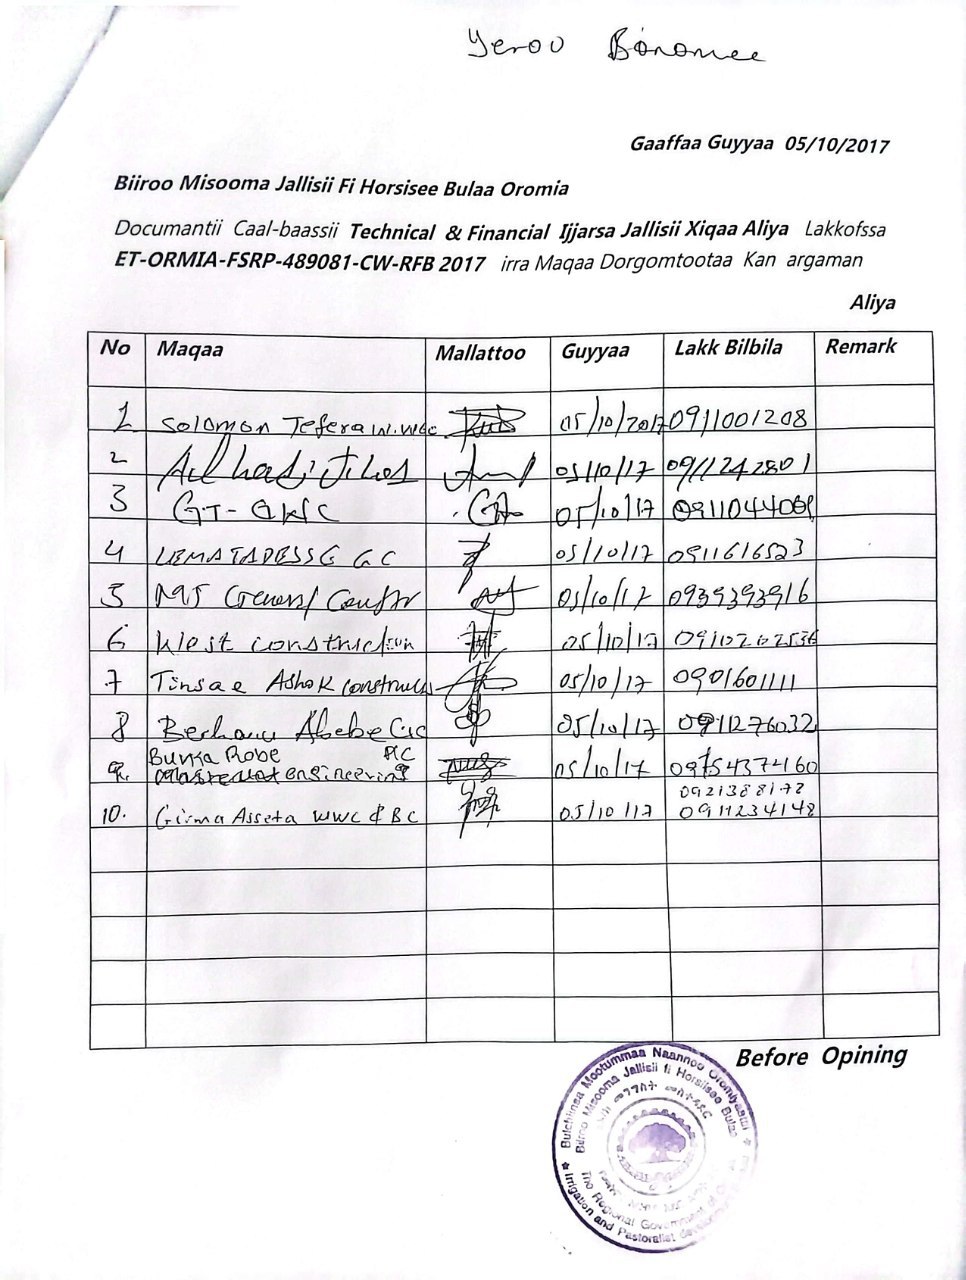 Yeroo Banamee
Gaaffaa Guyyaa 05/10/2017
Biiroo Misooma Jallisii Fi Horsisee Bulaa Oromia
Documantii Caal-baassii Technical & Financial Ijjarsa Jallisii Xiqaa Aliya Lakkofssa
ET-ORMIA-FSRP-489081-CW-RFB 2017 irra Maqaa Dorgomtootaa Kan argaman
Aliya
No Maqaa Mallattoo Guyyaa Lakk Bilbila Remark
1 Solomon Tefera W.WCC 05/10/2017 0911001208
2 05/10/17 0911242801
3 GT-GWC 05/10/17
4 LEMATADESSE GC 05/10/17 0911616523
5 General 05/10/17 0939393916
6 construction 05/10/17 0910202536
7 Tinsae Ashok construc 05/10/17 0901601111
8 Berhanu Abebe GC 05/10/17 0911276032
9. Bunka Robe PLC
engineering 05/10/17 09154374160
0921388172
10. Girma Asseta WWC & BC 05/10/17 0911234148
Before Opining
Bulchiinsa Mootummaa Naannoo Oromiyaatti
Biiroo Misooma Jallisii fi Horsiisee Bulaa
The Regional Government of
Irrigation and Pastoralist development